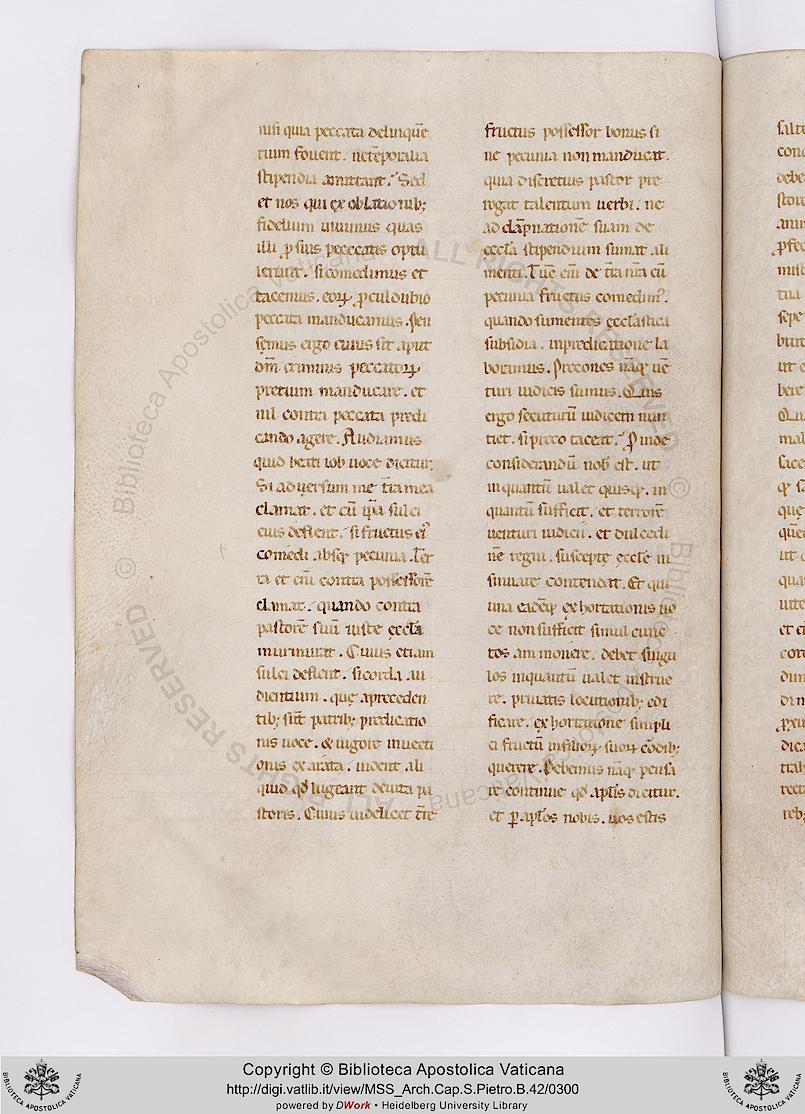 nisi quia peccata delinquẽ
tium fovent. ne tẽporalia
stipendia amittant? Sed
et nos qui ex oblationib;
fidelium vivimus quas
illi ꝓ suis pecccatis optu
lerunt. si comedimus et
tacemus. eoꝝ ꝓculdubio
peccata manducamus. Pen
semus ergo cuius sit aput
dm̃ criminis peccatoꝝ
pretium manducare. et
nil contra peccata predi
cando agere. Audiamus
quid beati iob voce dicitur;
Si adversum me t̃ra mea
clamat. et cũ ip̃a sulci
eius deflent. si fructus ei᾽
comedi absq; pecunia. Ter
ra et enĩ contra possessorẽ
clamat. quando contra
pastorẽ suũ iuste ęccl̃a
murmurat. Cuius etiam
sulci deflent. si corda au
dientium. quę a preceden
tib; sũt patrib; predicatio
nis voce. & vigore invecti
onis exarata. vident ali
quid qđ lugeant de vita pa
storis. Cuius videlicet t̃rę
fructus possessor bonus si
ne pecunia non manducat.
quia discretius pastor pre
rogat talentum verbi. ne
ad dãpnationẽ suam de
ęccl̃a stipendium sumat ali
menti. Tũc enĩ de t̃ra nr̃a cũ
pecunia fructus comedim᾽.
quando sumentes ęcclęsiastica
subsidia. in predicatione la
boramus. Precones nãq; vẽ
turi iudicis sumus. Quis
ergo secuturũ iudicem nun
tiet. si preco taceat? Proinde
considerandũ nob̃ est. ut
inquantũ valet quisq;. in
quantũ sufficit. et terrorẽ
venturi iudicii. et dulcedi
nẽ regni. susceptę ęccl̃ę in
sinuare contendat. Et qui
una eadẽq; exhortationis vo
ce non sufficit simul cunc
tos ammonere. debet singu
los inquantũ valet instrue
re. privatis locutionib; edi
ficare. exhortatione simpli
ci fructũ in filioꝝ suoꝝ cordib;
querere. Debemus nãq; pensa
re continue qđ ap̃lis dicitur.
et ꝑ ap̃los nobis. vos estis
Copyright © Biblioteca Apostolica Vaticana
http://digi.vatlib.it/view/MSS_Arch.Cap.S.Pietro.B.42/0300
powered by DWork • Heidelberg University Library